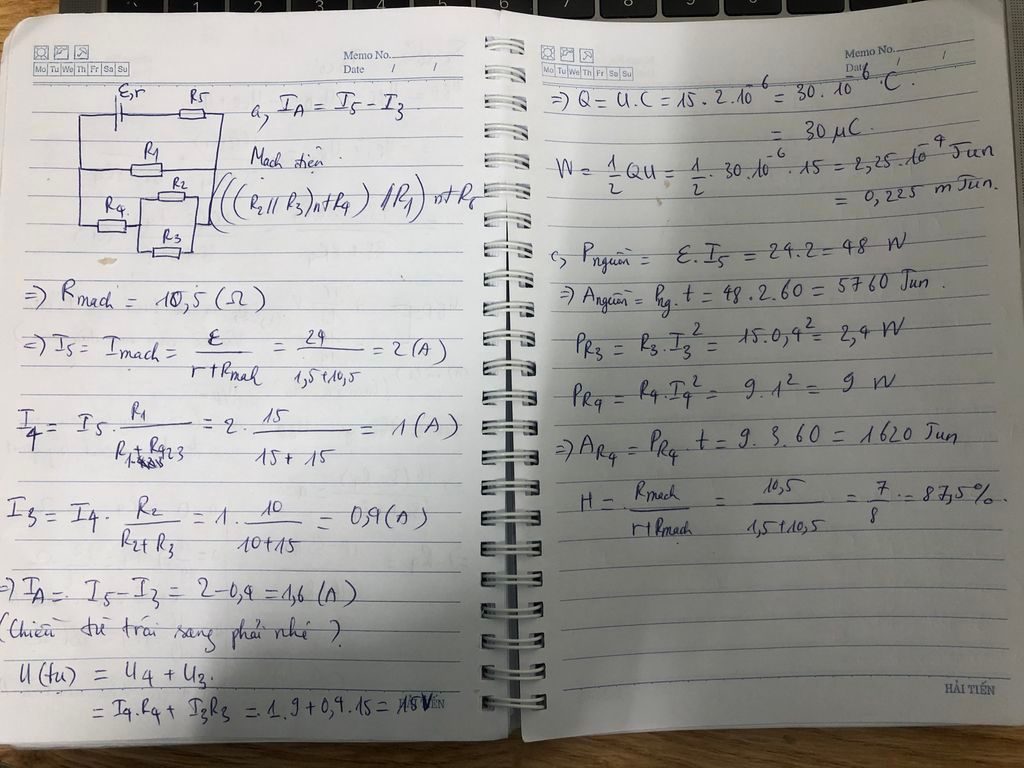 Memo No.
Mo Tu We Th Fr Sa Su
Date / /
ε,r
R5
R1
R2
R4
R3
a, I_A = I5 - I3
Mạch điện
(((R2 // R3) nt R4) // R1) nt R5
=> Rmạch = 10,5 (Ω)
=> I5 = Imạch = ε / (r + Rmạch) = 24 / (1,5+10,5) = 2 (A)
I4 = I5 . R1 / (R1 + R423) = 2 . 15 / (15 + 15) = 1 (A)
I3 = I4 . R2 / (R2 + R3) = 1 . 10 / (10+15) = 0,4 (A)
=> I_A = I5 - I3 = 2 - 0,4 = 1,6 (A)
(Chiều từ trái sang phải nhé)
U(tụ) = U4 + U3
= I4.R4 + I3R3 = 1.9 + 0,4.15 = 15V
HẢI TIẾN
Memo No.
Mo Tu We Th Fr Sa Su
Date / /
=> Q = U.C = 15.2.10^-6 = 30.10^-6 C.
= 30 μC.
W = 1/2 QU = 1/2 . 30.10^-6 . 15 = 2,25.10^-4 Jun
= 0,225 m Jun.
c, Pnguồn = ε.I5 = 24.2 = 48 W
=> Anguồn = Png.t = 48.2.60 = 5760 Jun.
P_R3 = R3.I3² = 15.0,4² = 2,4 W
P_R4 = R4.I4² = 9.1² = 9 W
=> A_R4 = P_R4.t = 9.3.60 = 1620 Jun
H = Rmạch / (r + Rmạch) = 10,5 / (1,5+10,5) = 7/8 = 87,5%.
HẢI TIẾN